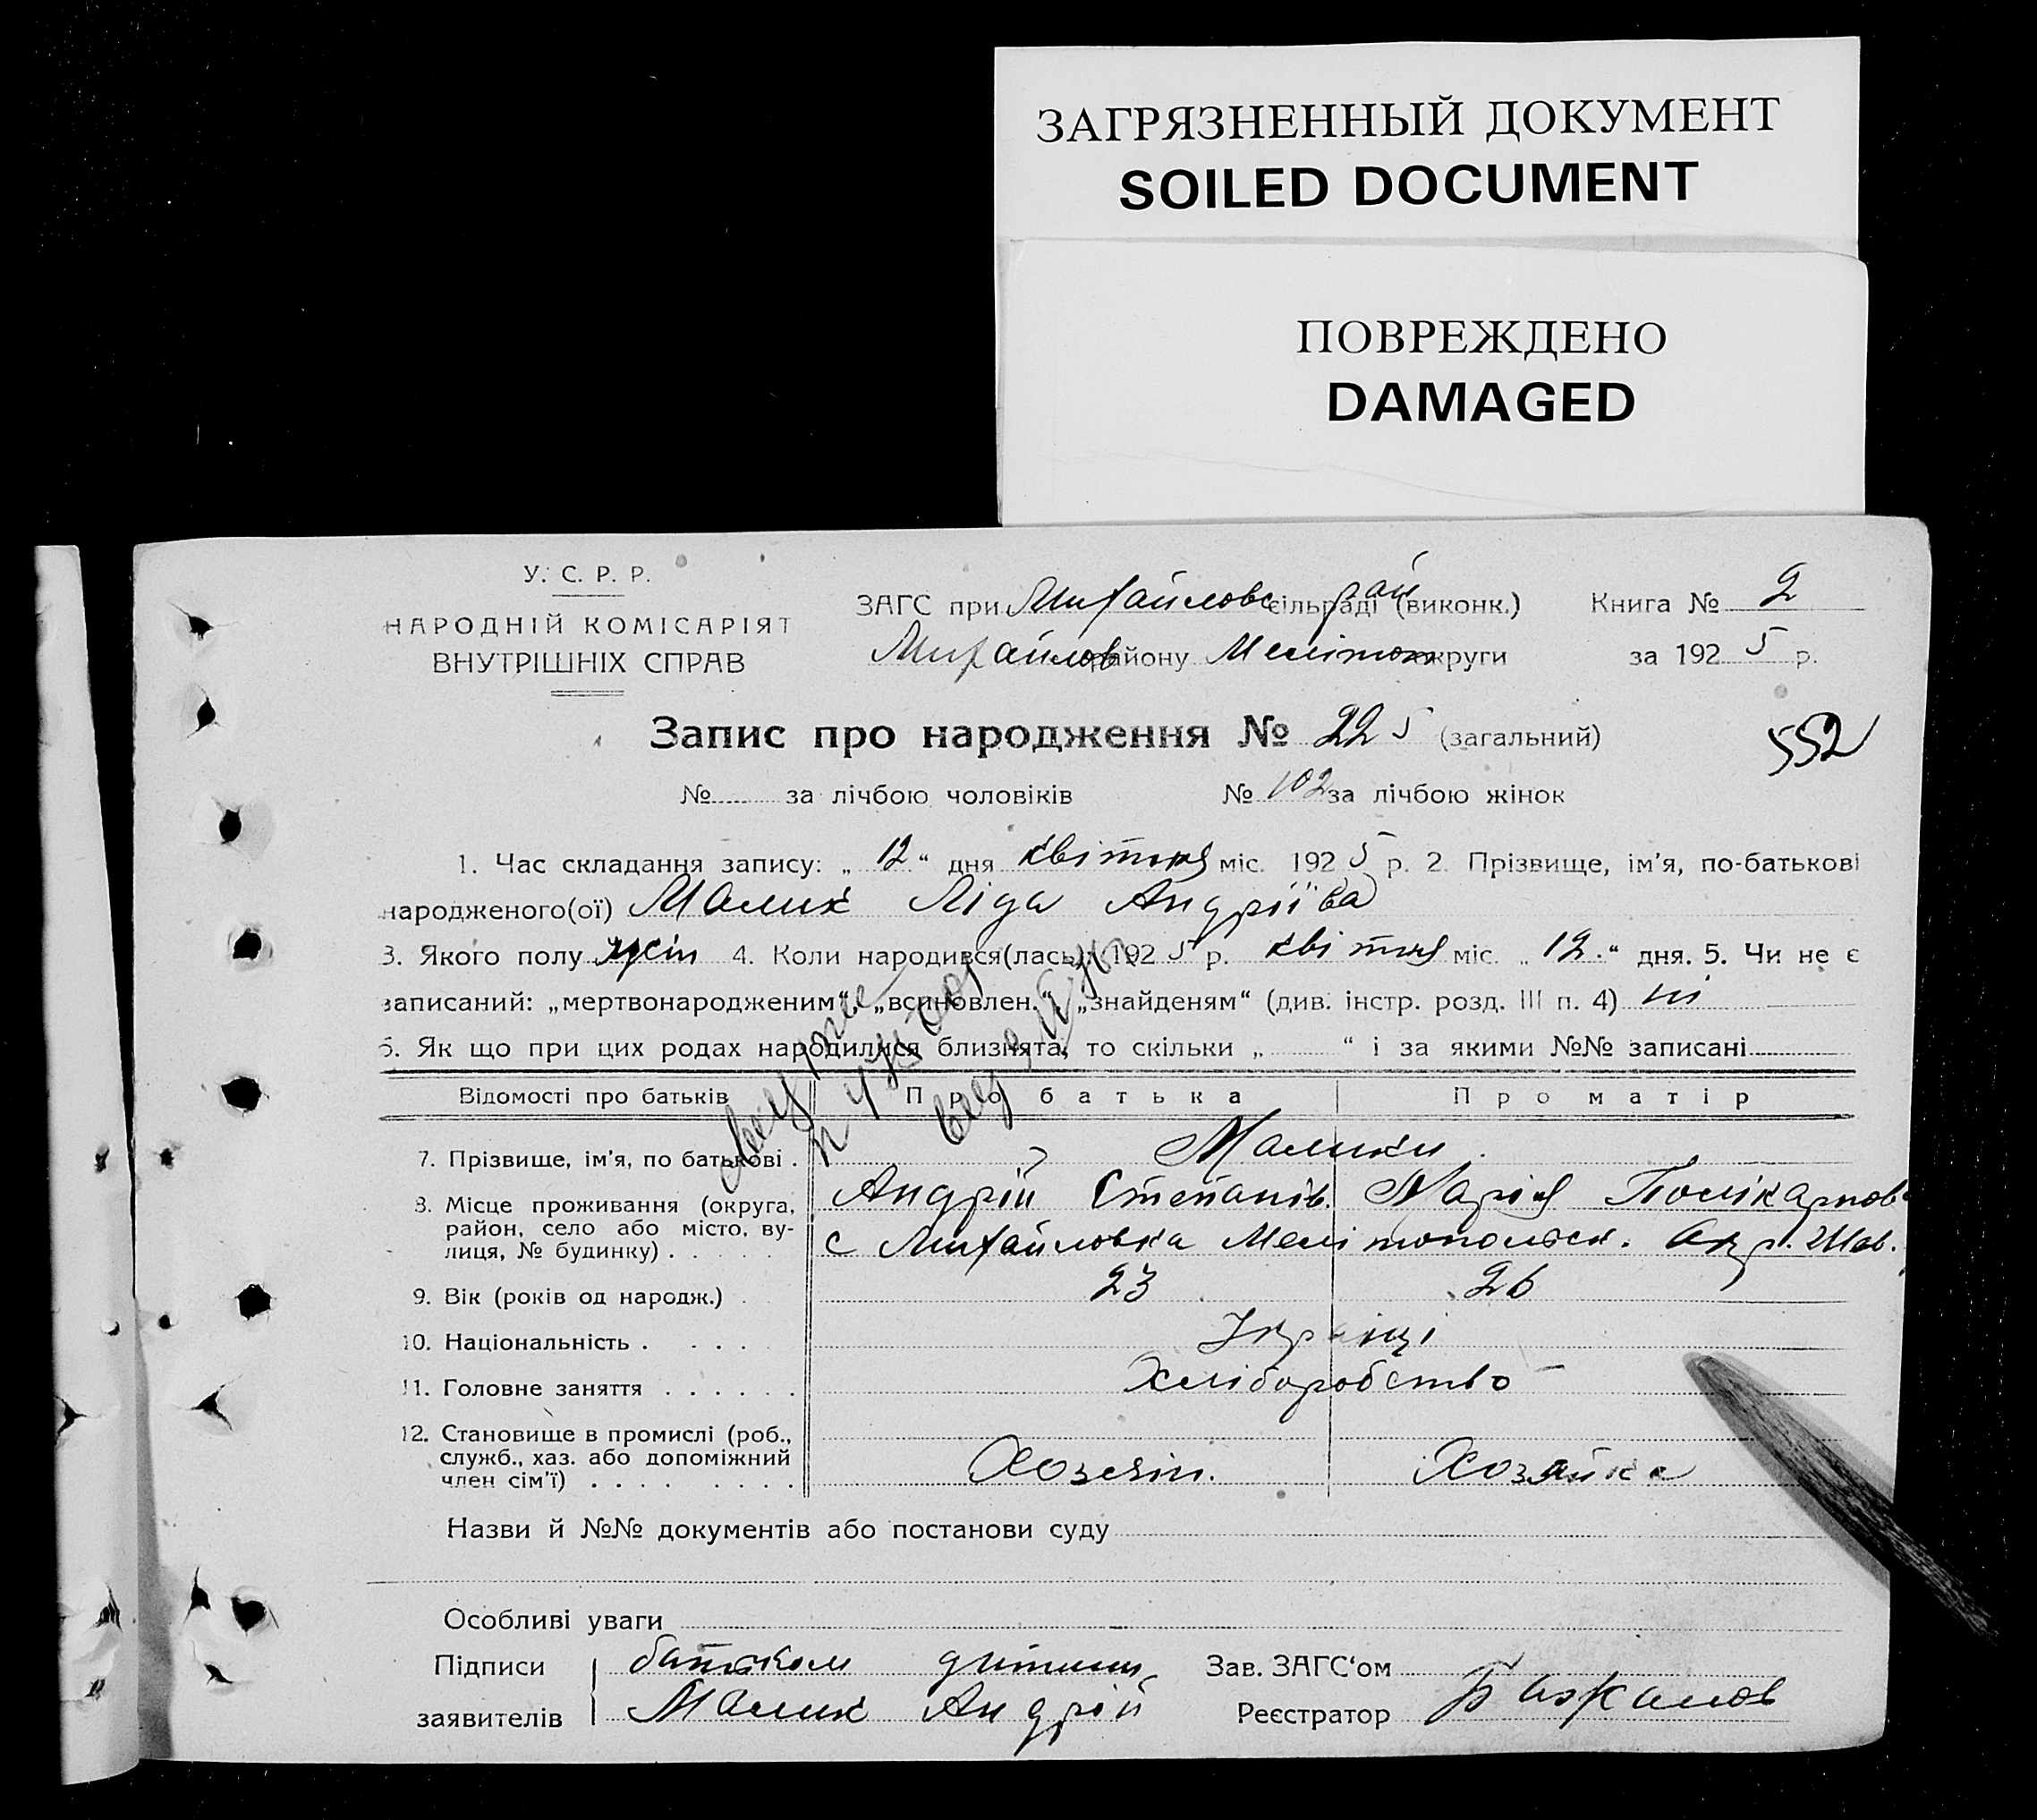 ЗАГРЯЗНЕННЫЙ ДОКУМЕНТ
SOILED DOCUMENT
ПОВРЕЖДЕНО
DAMAGED
У. С. Р. Р.
НАРОДНІЙ КОМІСАРІЯТ
ВНУТРІШНІХ СПРАВ
ЗАГС при Михайловс сільраді рай (виконк.) Книга № 2
Михайлов району Мелітоп округи за 1925 р.
Запис про народження № 225 (загальний)
552
№ за лічбою чоловіків № 102 за лічбою жінок
1. Час складання запису: „ 12 “ дня квітня міс. 1925 р. 2. Прізвище, ім'я, по-батькові
народженого(ої) Малик Ліда Андріїва
3. Якого полу жін 4. Коли народився(лась): 1925 р. квітня міс. „ 12. “ дня. 5. Чи не є
записаний: „мертвонародженим“, „всиновлен.“, „знайденям“ (див. інстр. розд. III п. 4) ні
6. Як що при цих родах народилися близнята, то скільки „ “ і за якими №№ записані
Відомості про батьків Про батька Про матір
7. Прізвище, ім'я, по батькові . Малики.
Андрій Степанів. Марія Полікарпов
8. Місце проживання (округа,
район, село або місто, ву-
лиця, № будинку) . . . с Михайловка Мелітопольск. Окр.
9. Вік (років од народж.) . 23 26
10. Національність . . . . Українці
11. Головне заняття . . . . . . Хліборобство
12. Становище в промислі (роб.,
служб., хаз. або допоміжний
член сім'ї) . . . . . . . . Хозяїн. Хозяйка
Назви й №№ документів або постанови суду
Особливі уваги
Підписи батьком дитини Зав. ЗАГС‘ом
заявителів Малик Андрій Реєстратор Бажанов